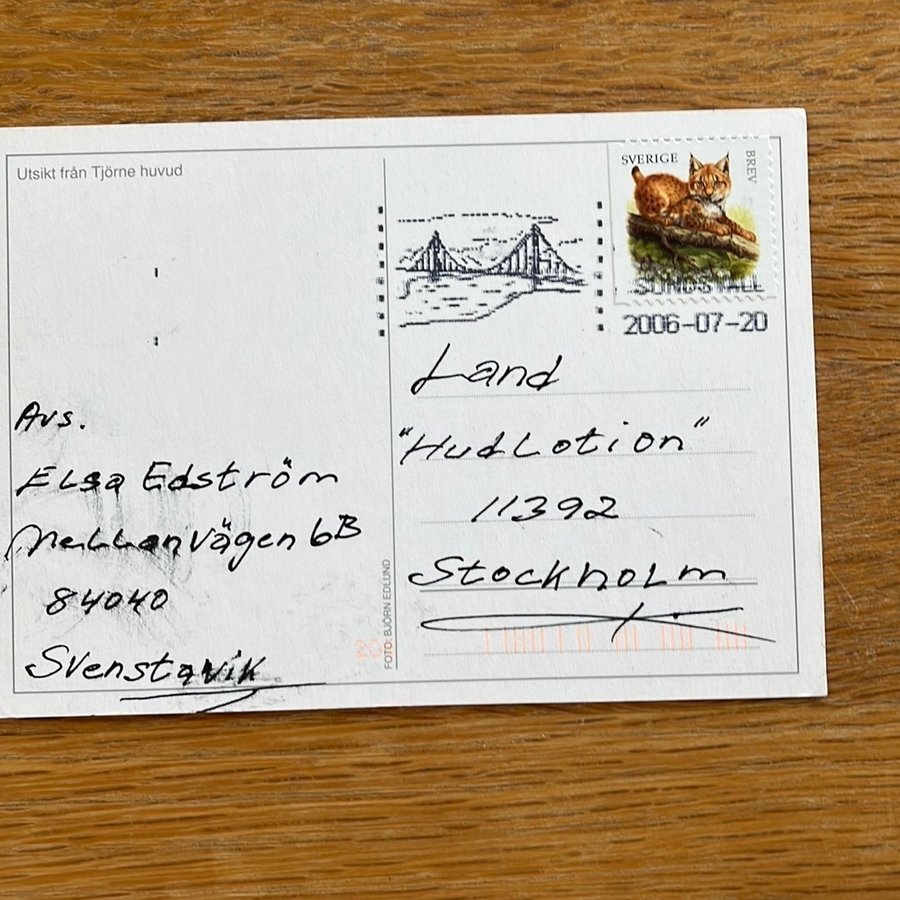 Utsikt från Tjörne huvud
SVERIGE
BREV
SUNDSVALL
2006-07-20
Land
"HudLotion"
11392
Stockholm
Avs.
Elsa Edström
Mellanvägen 6B
84040
Svenstavik
FOTO: BJÖRN EDLUND